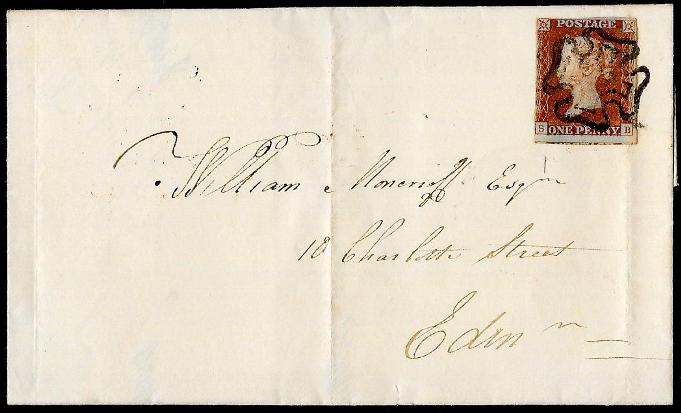 POSTAGE
S ONE PENNY B
William Moncrieff Esqr
18 Charlotte Street
Edinr